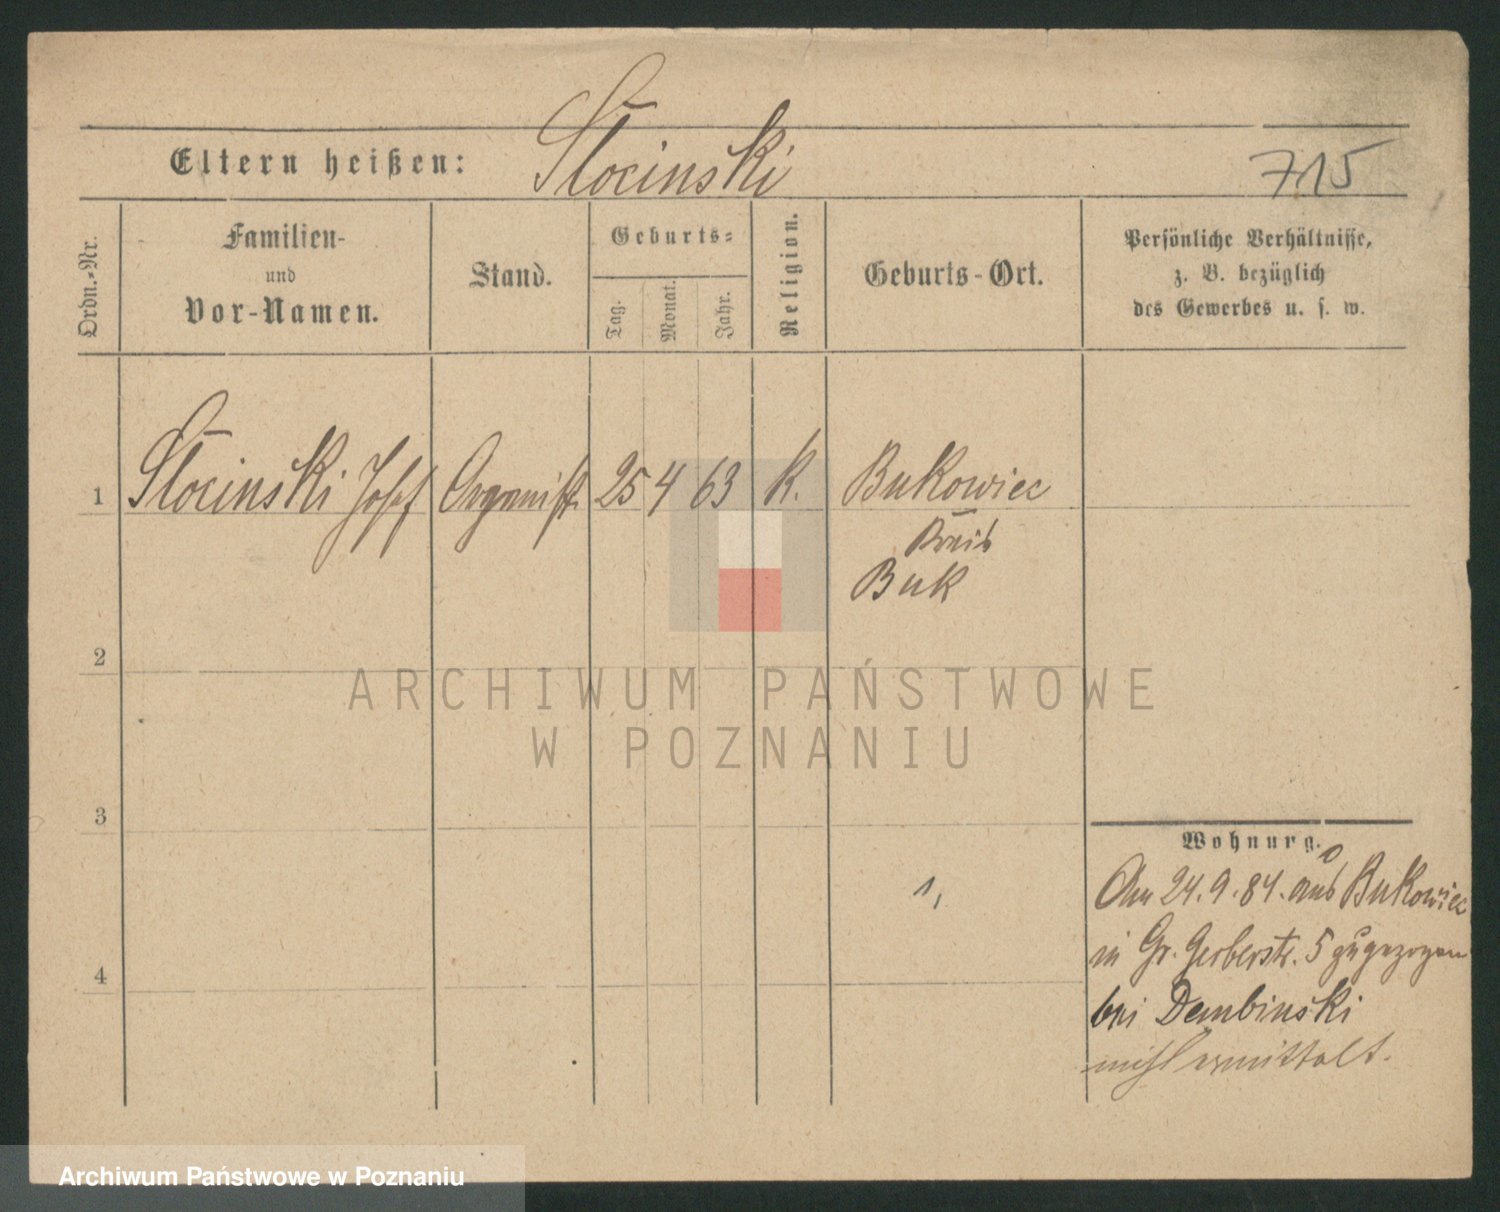 Eltern heißen: Słocinski
715
Ordn.-Nr.
Familien-
und
Vor-Namen.
Stand.
Geburts-
Tag.
Monat.
Jahr.
Religion.
Geburts-Ort.
Persönliche Verhältnisse,
z. B. bezüglich
des Gewerbes u. s. w.
1 Słocinski Josef Organist 25 4 63 K. Bukowiec
Kreis
Buk
2
3
4
1,
Wohnung.
Am 24.9.84. aus Bukowiec
in Gr. Gerberstr. 5 zugezogen
bei Dembinski
nicht ermittelt.
ARCHIWUM PAŃSTWOWE
W POZNANIU
Archiwum Państwowe w Poznaniu